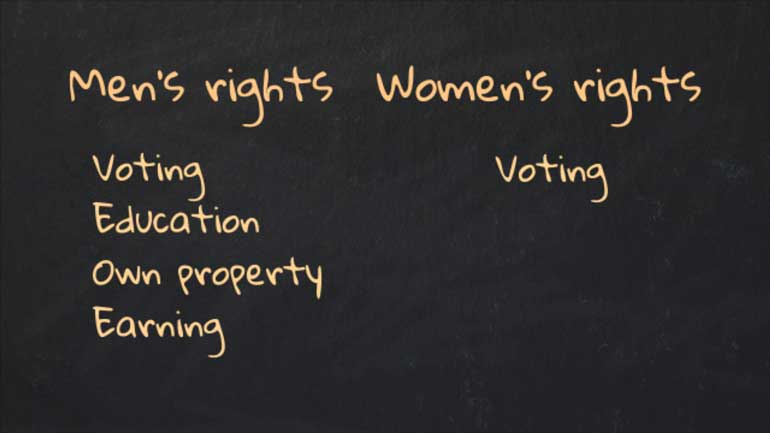 Men's rights
Women's rights
Voting
Voting
Education
Own property
Earning